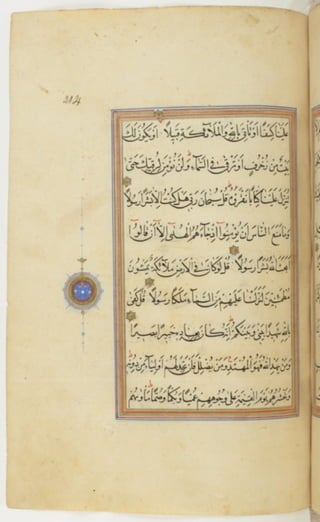 284
علينا كسفا او تاتي بالله والملائكة قبيلا او يكون لك
بيت من زخرف او ترقى في السماء ولن نؤمن لرقيك حتى
تنزل علينا كتابا نقرؤه قل سبحان ربي هل كنت الا بشرا رسولا
وما منع الناس ان يؤمنوا اذ جاءهم الهدى الا ان قالوا
ابعث الله بشرا رسولا قل لو كان في الارض ملائكة يمشون
مطمئنين لنزلنا عليهم من السماء ملكا رسولا قل كفى
بالله شهيدا بيني وبينكم انه كان بعباده خبيرا بصيرا
ومن يهد الله فهو المهتد ومن يضلل فلن تجد لهم اولياء من دونه
ونحشرهم يوم القيمة على وجوههم عميا وبكما وصما ماويهم